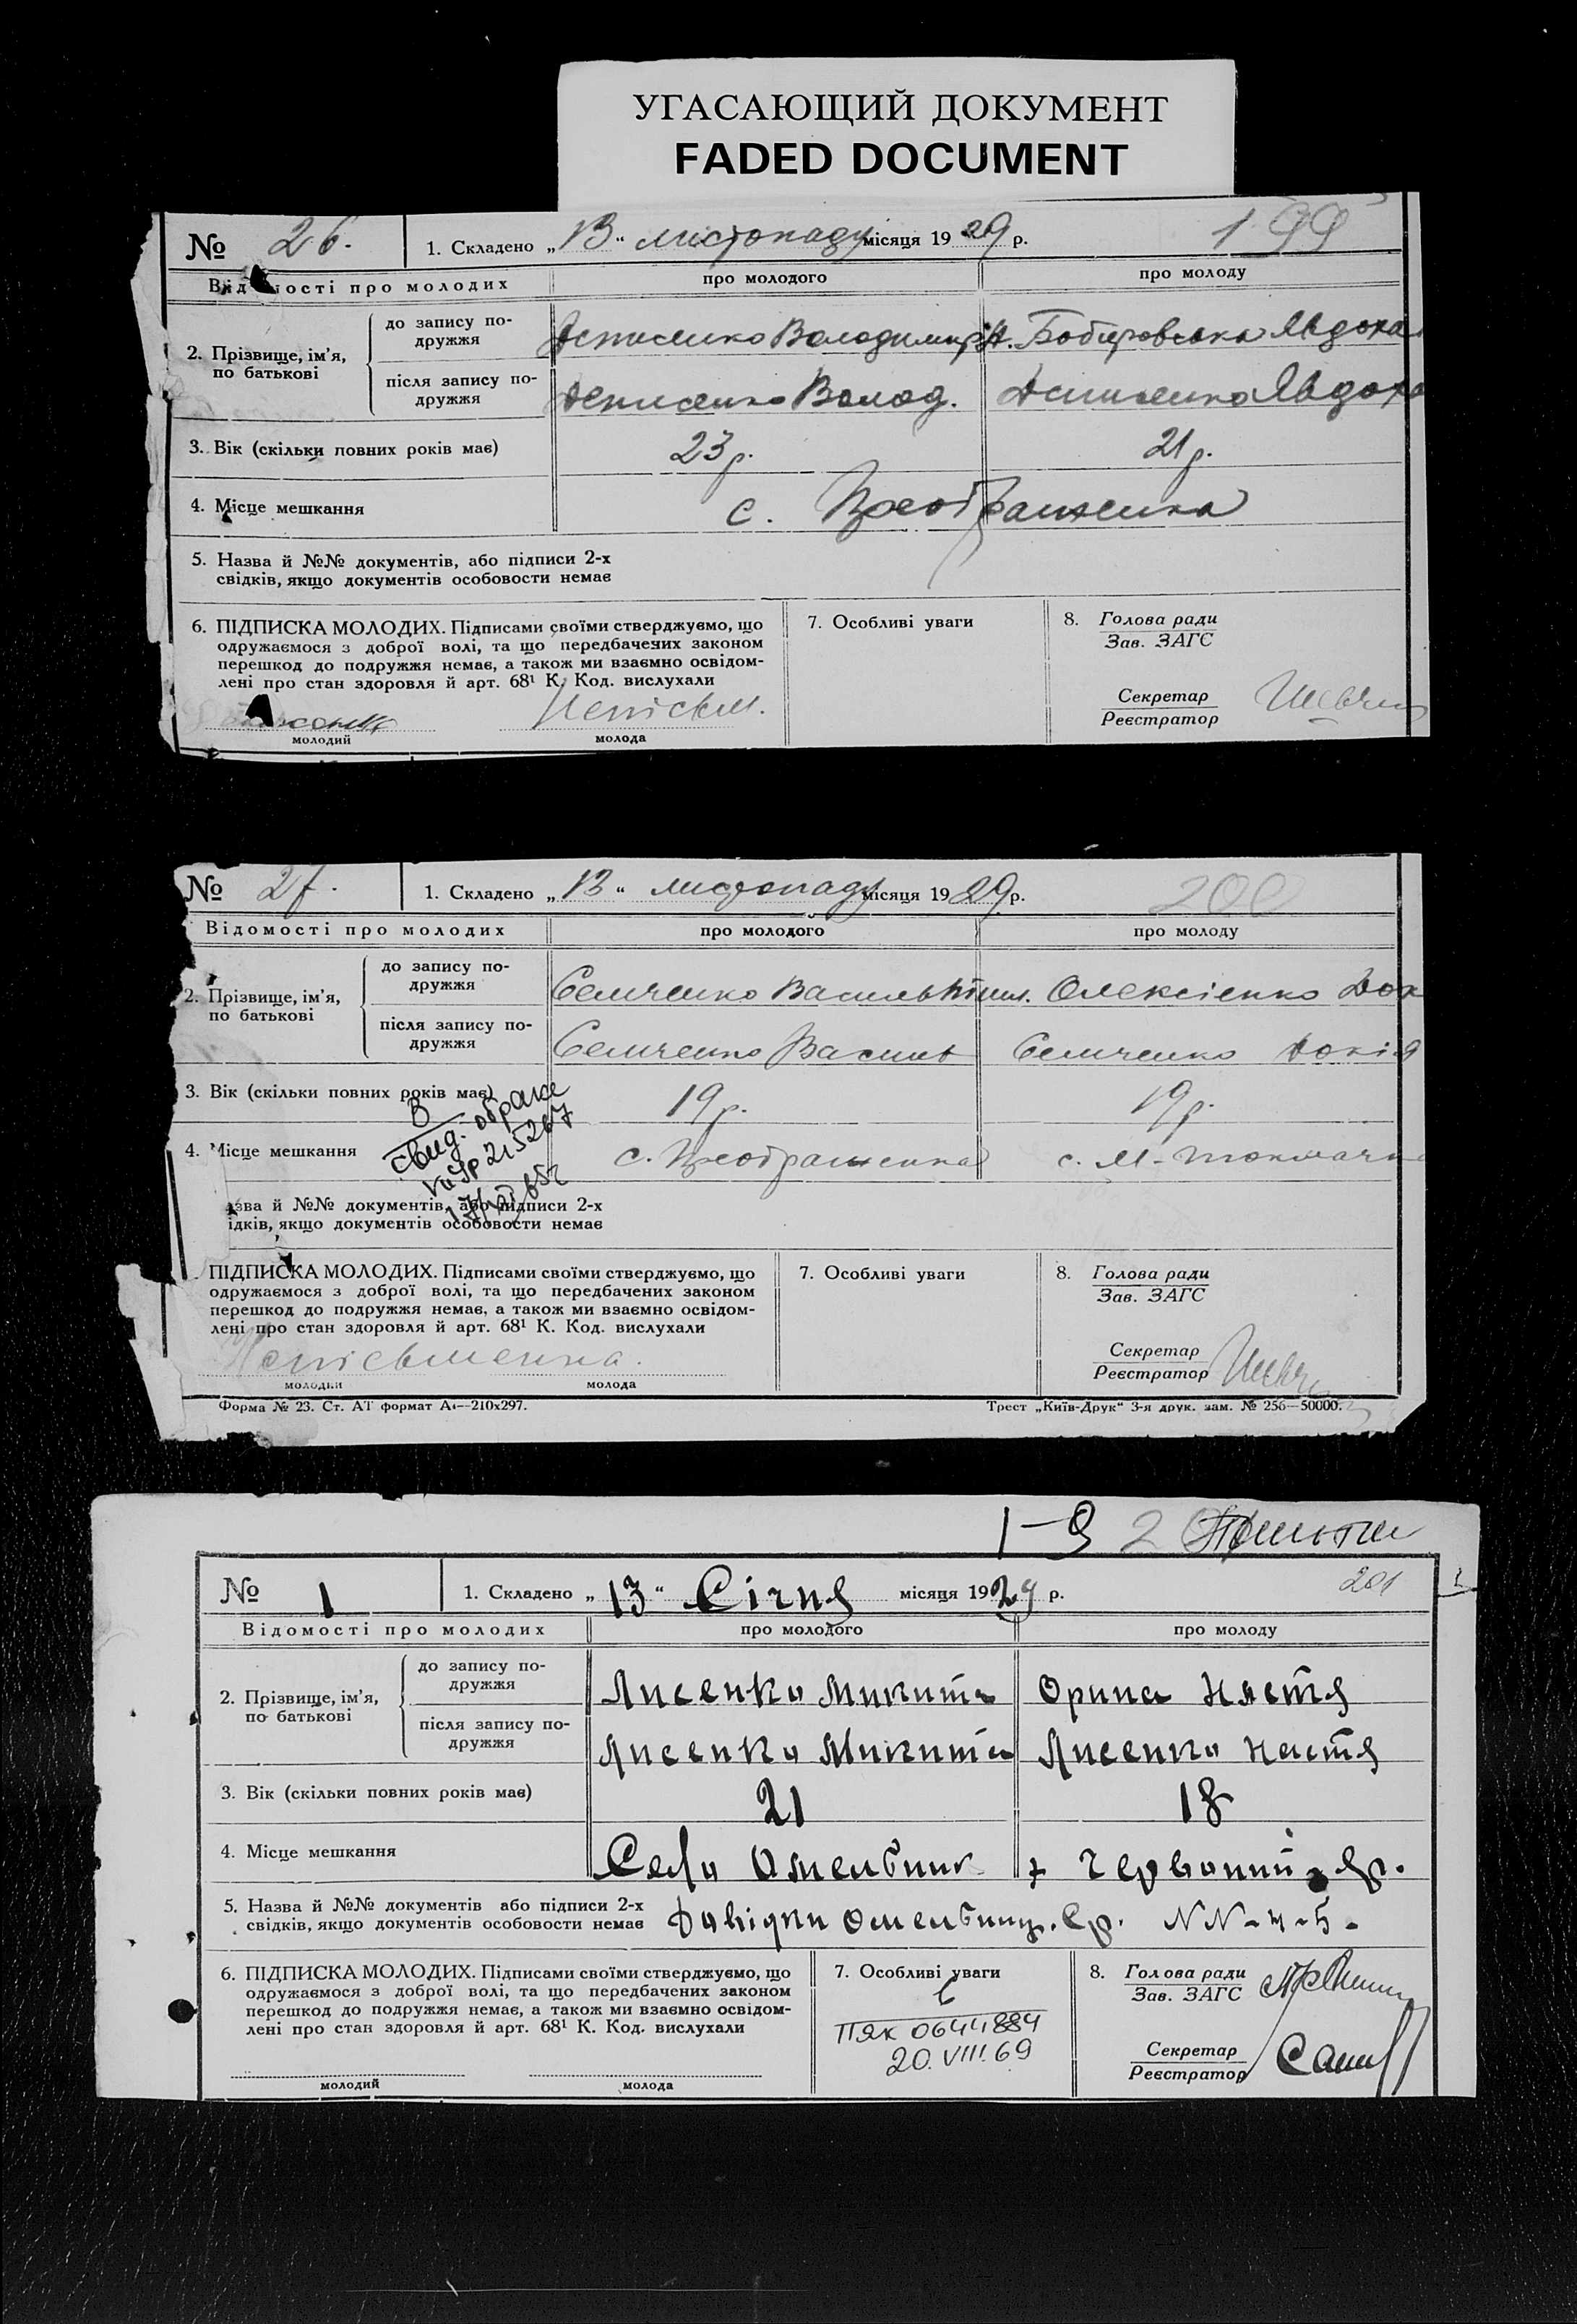 УГАСАЮЩИЙ ДОКУМЕНТ
FADED DOCUMENT
№ 26. 1. Складено „13“ листопаду місяця 1929 р. 199
Відомості про молодих про молодого про молоду
2. Прізвище, ім'я, по батькові
до запису подружжя Денисенко Володимир Бобировська Явдоха
після запису подружжя Денисенко Волод. Денисенко Явдоха
3. Вік (скільки повних років має) 23 р. 21 р.
4. Місце мешкання с. Преображенка
5. Назва й №№ документів, або підписи 2-х
свідків, якщо документів особовости немає
6. ПІДПИСКА МОЛОДИХ. Підписами своїми стверджуємо, що
одружаємося з доброї волі, та що передбачених законом
перешкод до подружжя немає, а також ми взаємно освідом-
лені про стан здоровля й арт. 68¹ К. Код. вислухали
Неписьм.
молодий молода
7. Особливі уваги
8. Голова ради
Зав. ЗАГС
Секретар
Реєстратор
№ 27. 1. Складено „13“ листопаду місяця 1929 р. 200
Відомості про молодих про молодого про молоду
2. Прізвище, ім'я, по батькові
до запису подружжя Семченко Василь Олексієнко Док
після запису подружжя Семченко Василь Семченко Докія
3. Вік (скільки повних років має) 19 р. 19 р.
4. Місце мешкання с. Преображенка с. М-Токмачка
свид. о браке
215267
азва й №№ документів, або підписи 2-х
ідків, якщо документів особовости немає
ПІДПИСКА МОЛОДИХ. Підписами своїми стверджуємо, що
одружаємося з доброї волі, та що передбачених законом
перешкод до подружжя немає, а також ми взаємно освідом-
лені про стан здоровля й арт. 68¹ К. Код. вислухали
Неписьменна.
молодий молода
7. Особливі уваги
8. Голова ради
Зав. ЗАГС
Секретар
Реєстратор
Форма № 23. Ст. АТ формат А₄—210х297. Трест „Київ-Друк“ 3-я друк. зам. № 256—50000.
1-9
№ 1 1. Складено „13“ Січня місяця 1929 р. 201
Відомості про молодих про молодого про молоду
2. Прізвище, ім'я, по батькові
до запису подружжя Лисенко Микита Орина Настя
після запису подружжя Лисенко Микита Лисенко Настя
3. Вік (скільки повних років має) 21 18
4. Місце мешкання Село Омельник х Червоний яр.
5. Назва й №№ документів або підписи 2-х
свідків, якщо документів особовости немає Довідки Омельниц. Ср. NN-4-5-
6. ПІДПИСКА МОЛОДИХ. Підписами своїми стверджуємо, що
одружаємося з доброї волі, та що передбачених законом
перешкод до подружжя немає, а також ми взаємно освідом-
лені про стан здоровля й арт. 68¹ К. Код. вислухали
молодий молода
7. Особливі уваги
ПЯК 0644884
20.VIII.69
8. Голова ради
Зав. ЗАГС
Секретар
Реєстратор